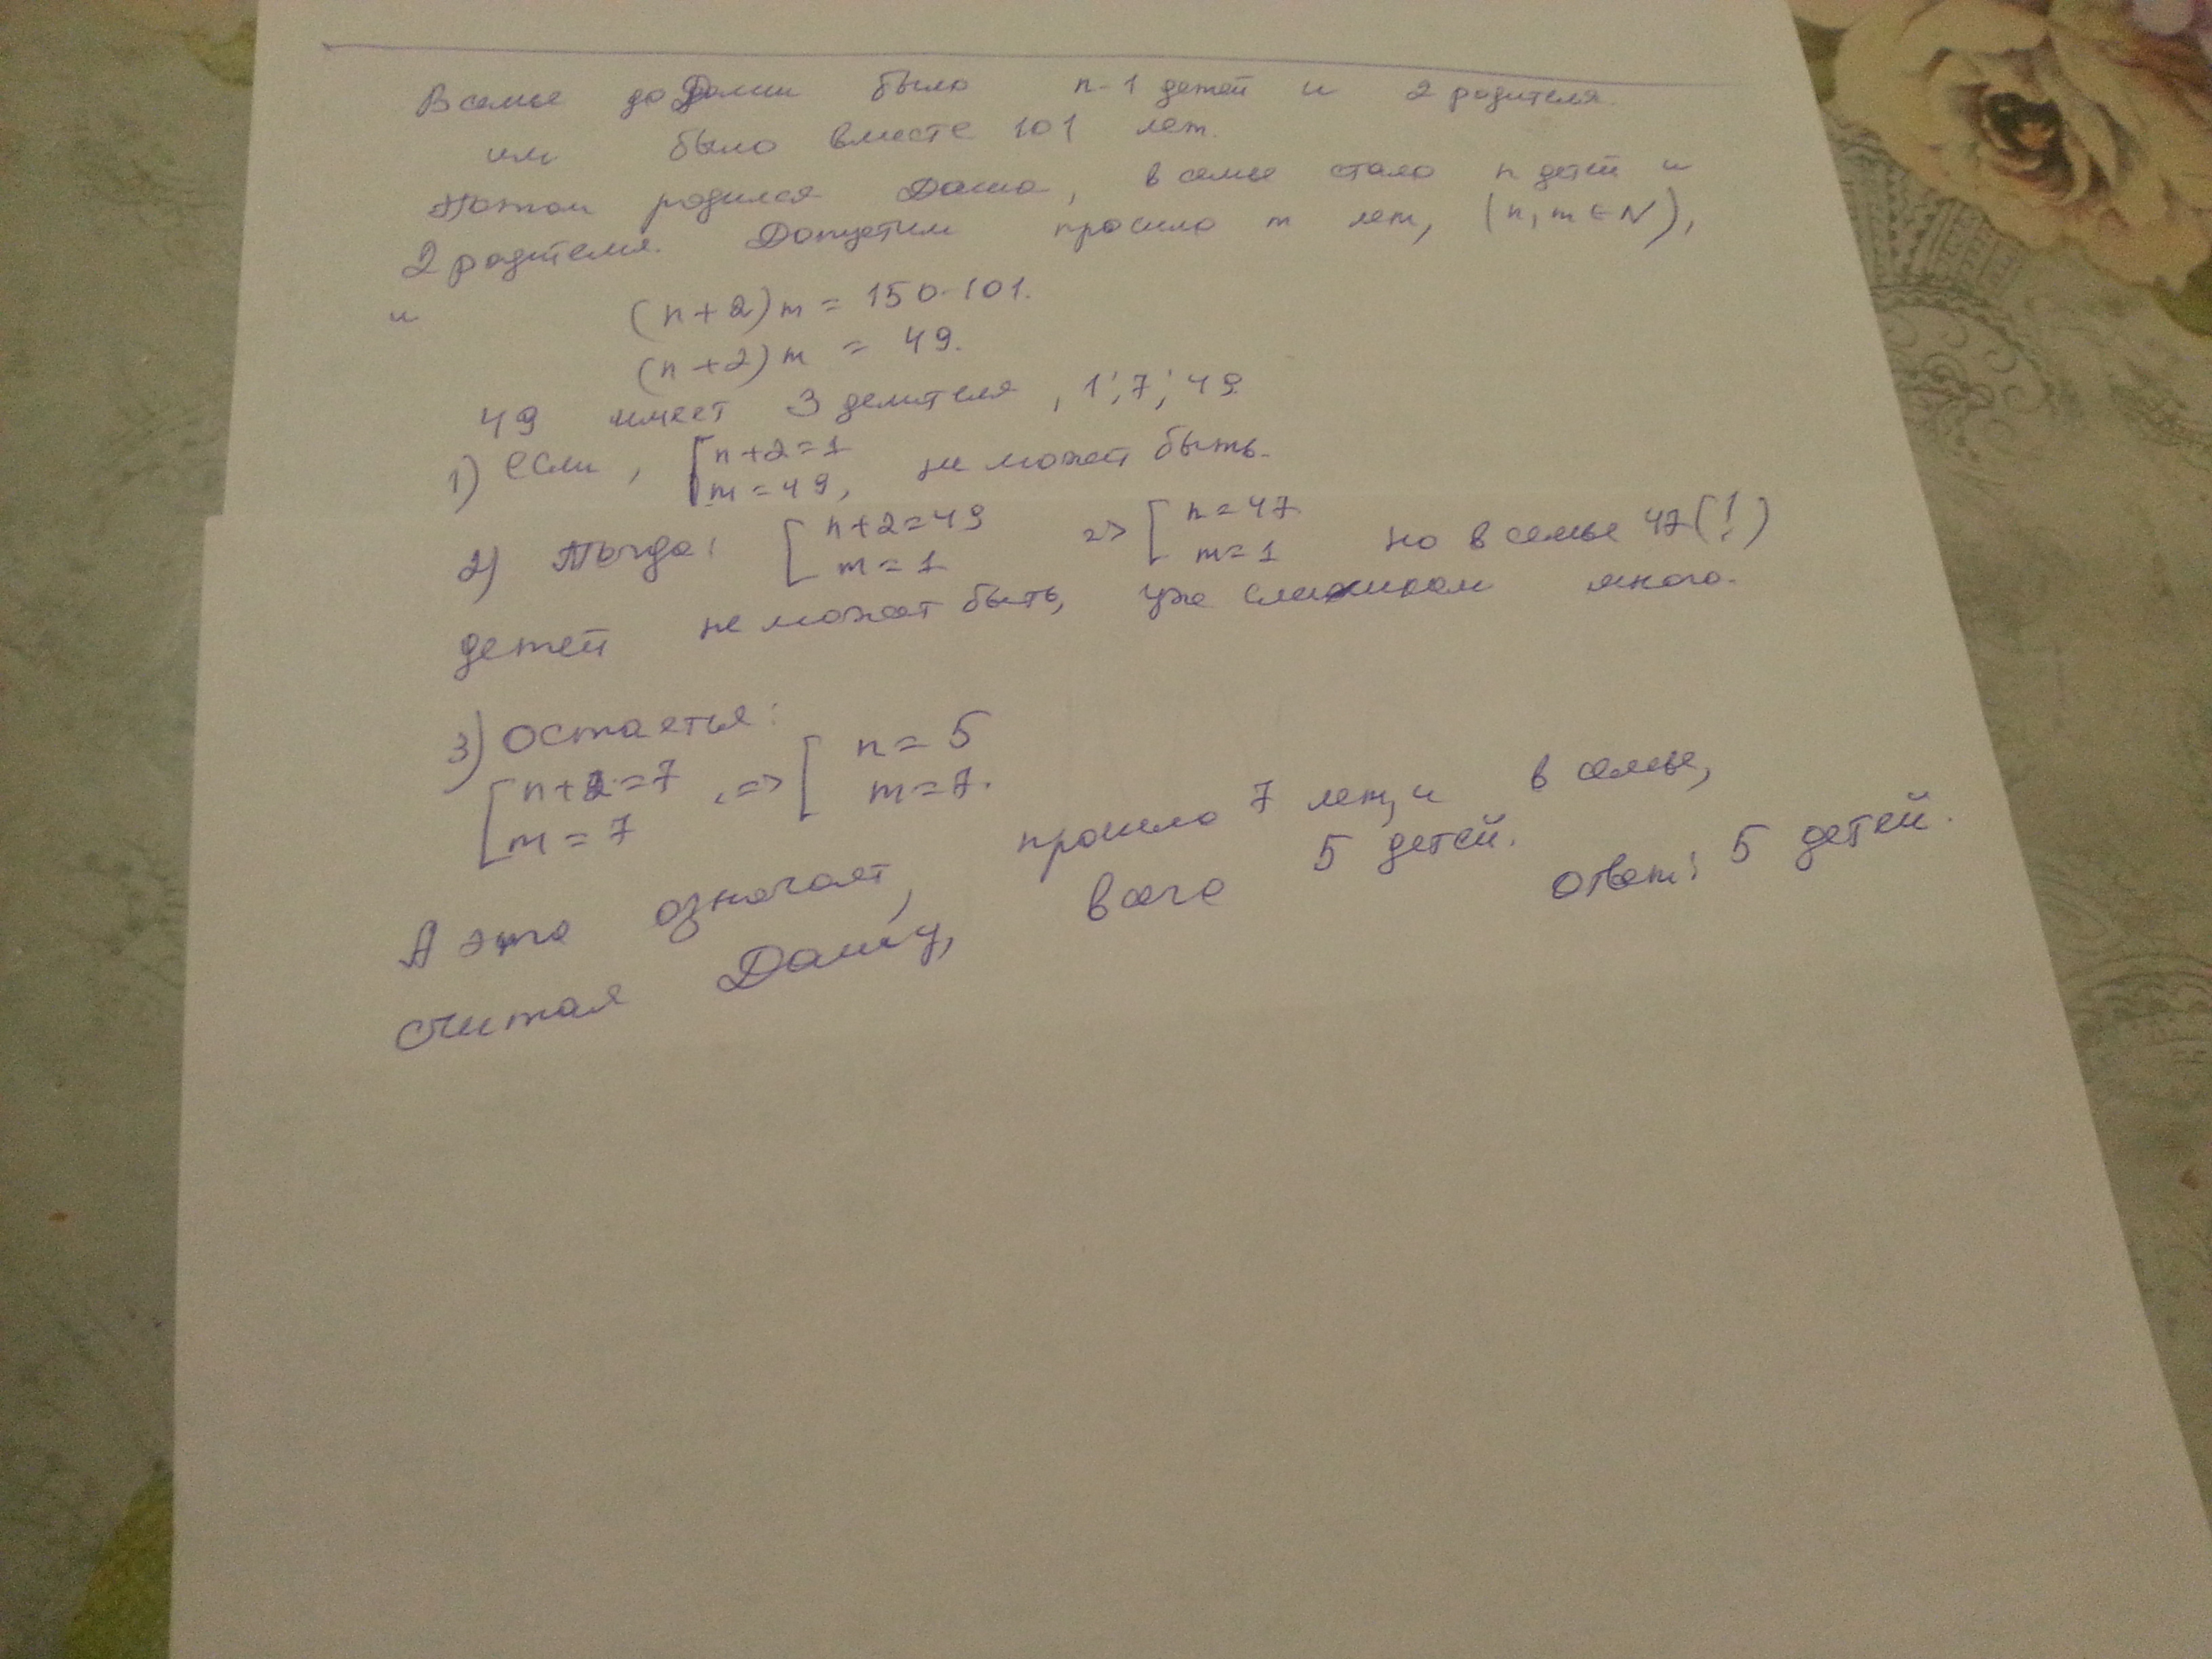 В семье до Даши было n-1 детей и 2 родителя.
им было вместе 101 лет.
Потом родился Даша, в семье стало n детей и
2 родителя. Допустим прошло m лет, (n, m ∈ N),
и (n+2)m = 150-101.
(n+2)m = 49.
49 имеет 3 делителя, 1; 7; 49
1) Если, [n+2=1
m=49, не может быть.
2) Тогда: [n+2=49 => [n=47
m=1 m=1 но в семье 47(!)
детей не может быть, уже слишком много.
3) Остаеться:
[n+2=7, => [n=5
m=7 m=7.
А это означает, прошло 7 лет, и в семье,
считая Дашу, всего 5 детей.
Ответ: 5 детей.